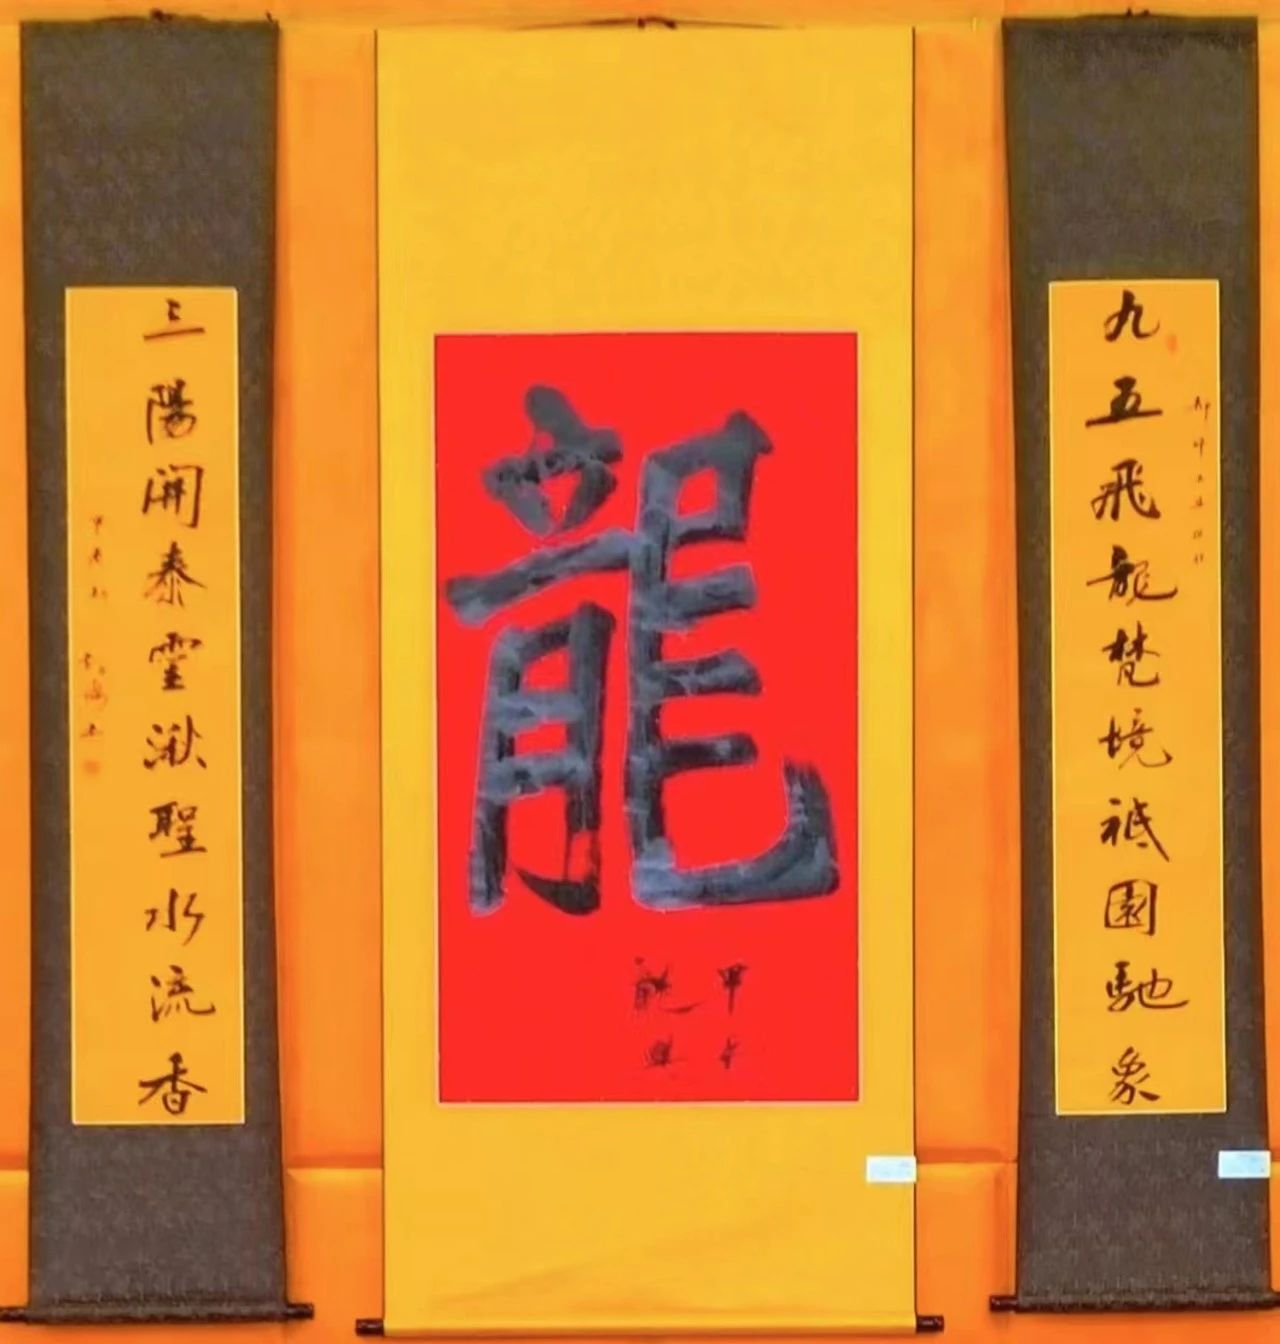 九五飛龍梵境祗園馳象
龍
甲辰
三陽開泰霊湫聖水流香
甲辰